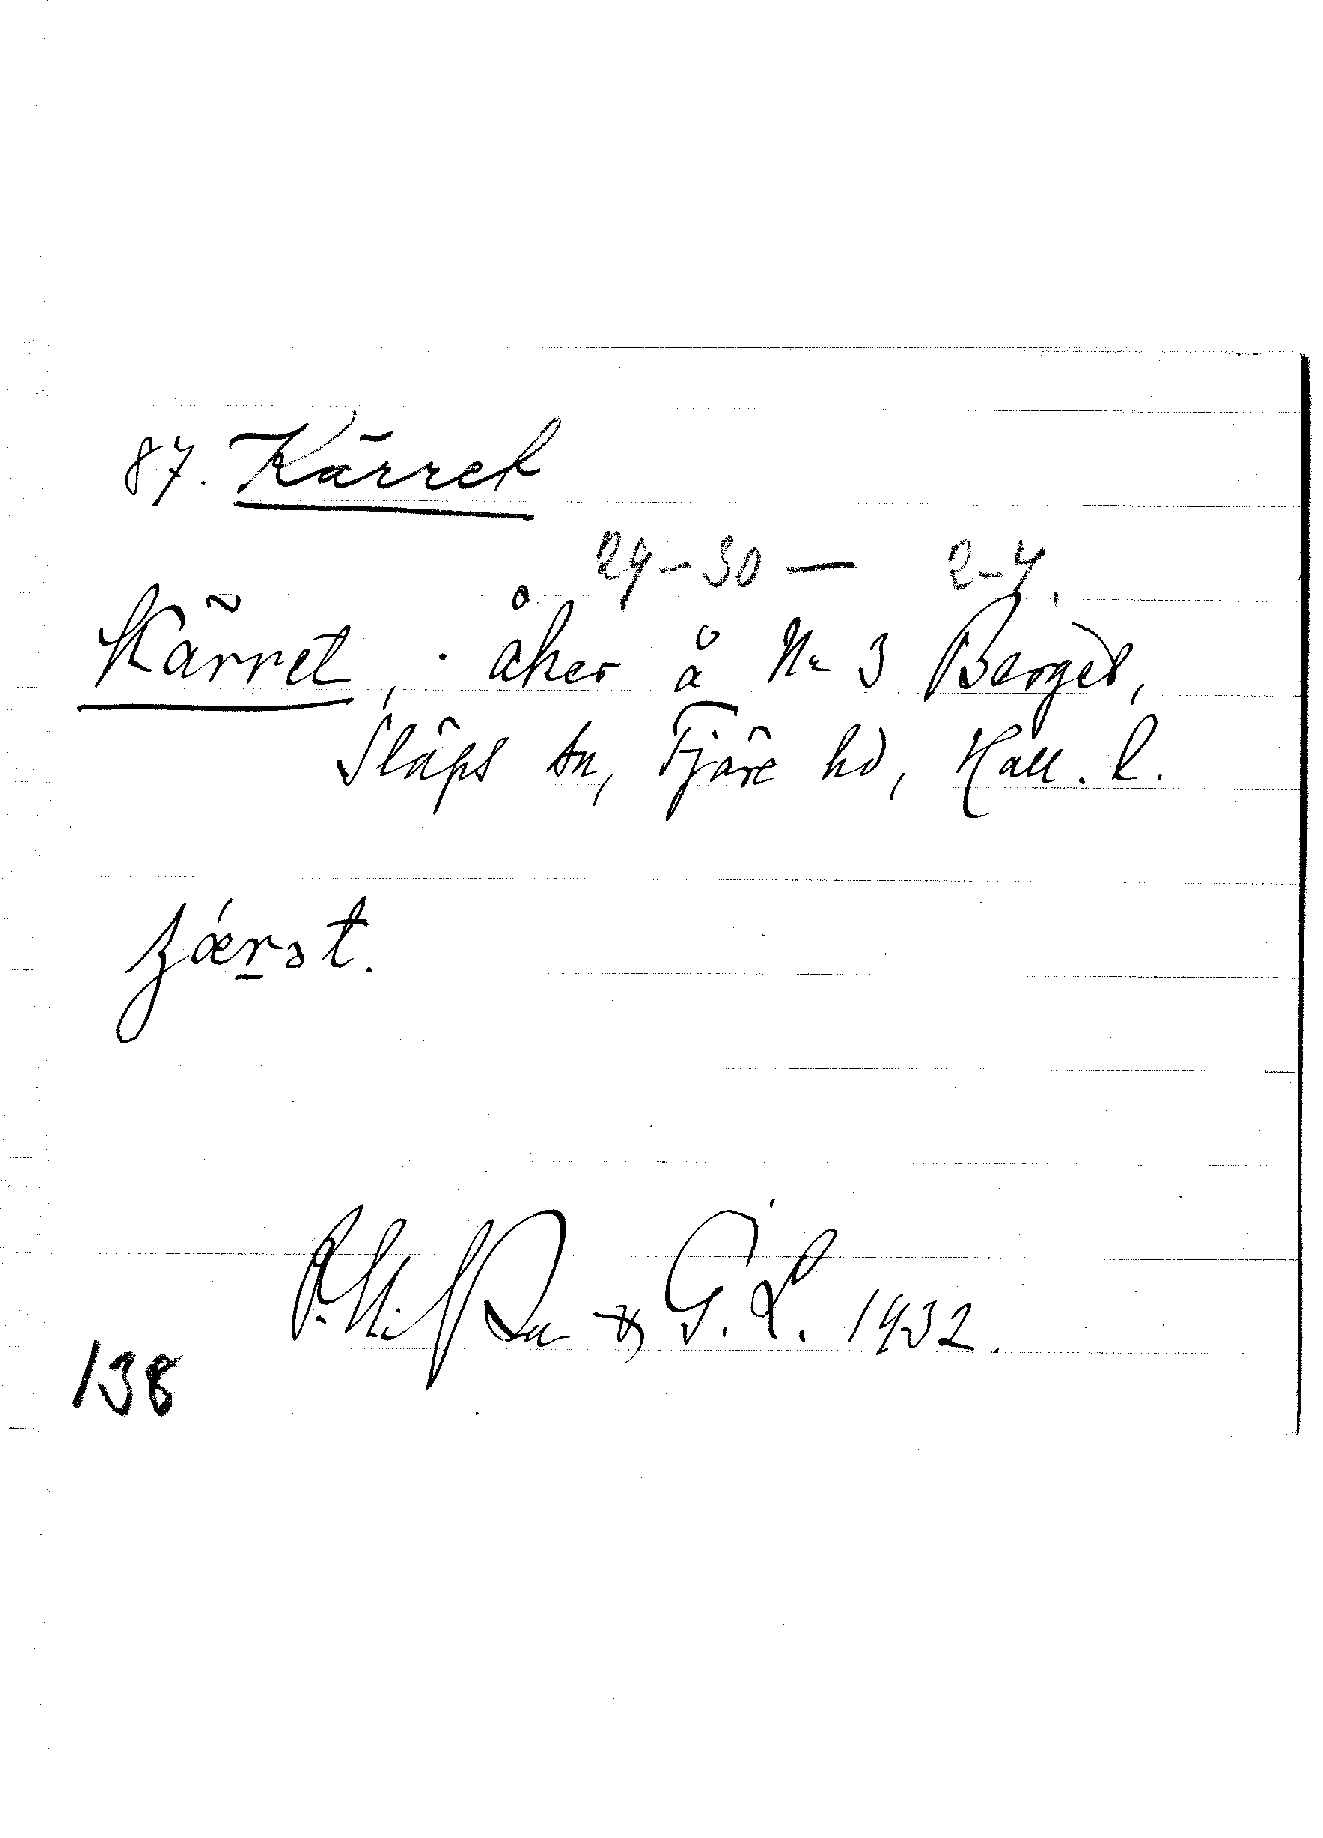 87. Kärret
29-30 — 2-4.
Kärret, åker å Nr 3 Berget,
Släps sn, Fjäre hd, Hall. l.
G. L. 1932.
138